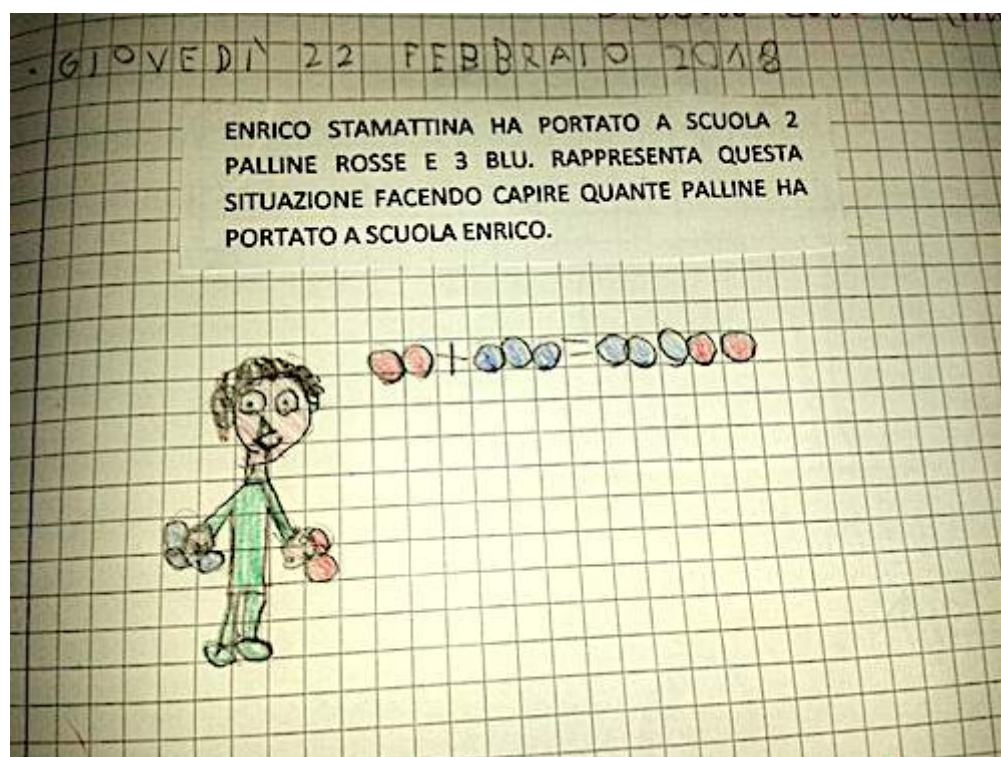 . GIOVEDÌ 22 FEBBRAIO 2018
ENRICO STAMATTINA HA PORTATO A SCUOLA 2
PALLINE ROSSE E 3 BLU. RAPPRESENTA QUESTA
SITUAZIONE FACENDO CAPIRE QUANTE PALLINE HA
PORTATO A SCUOLA ENRICO.
+ =